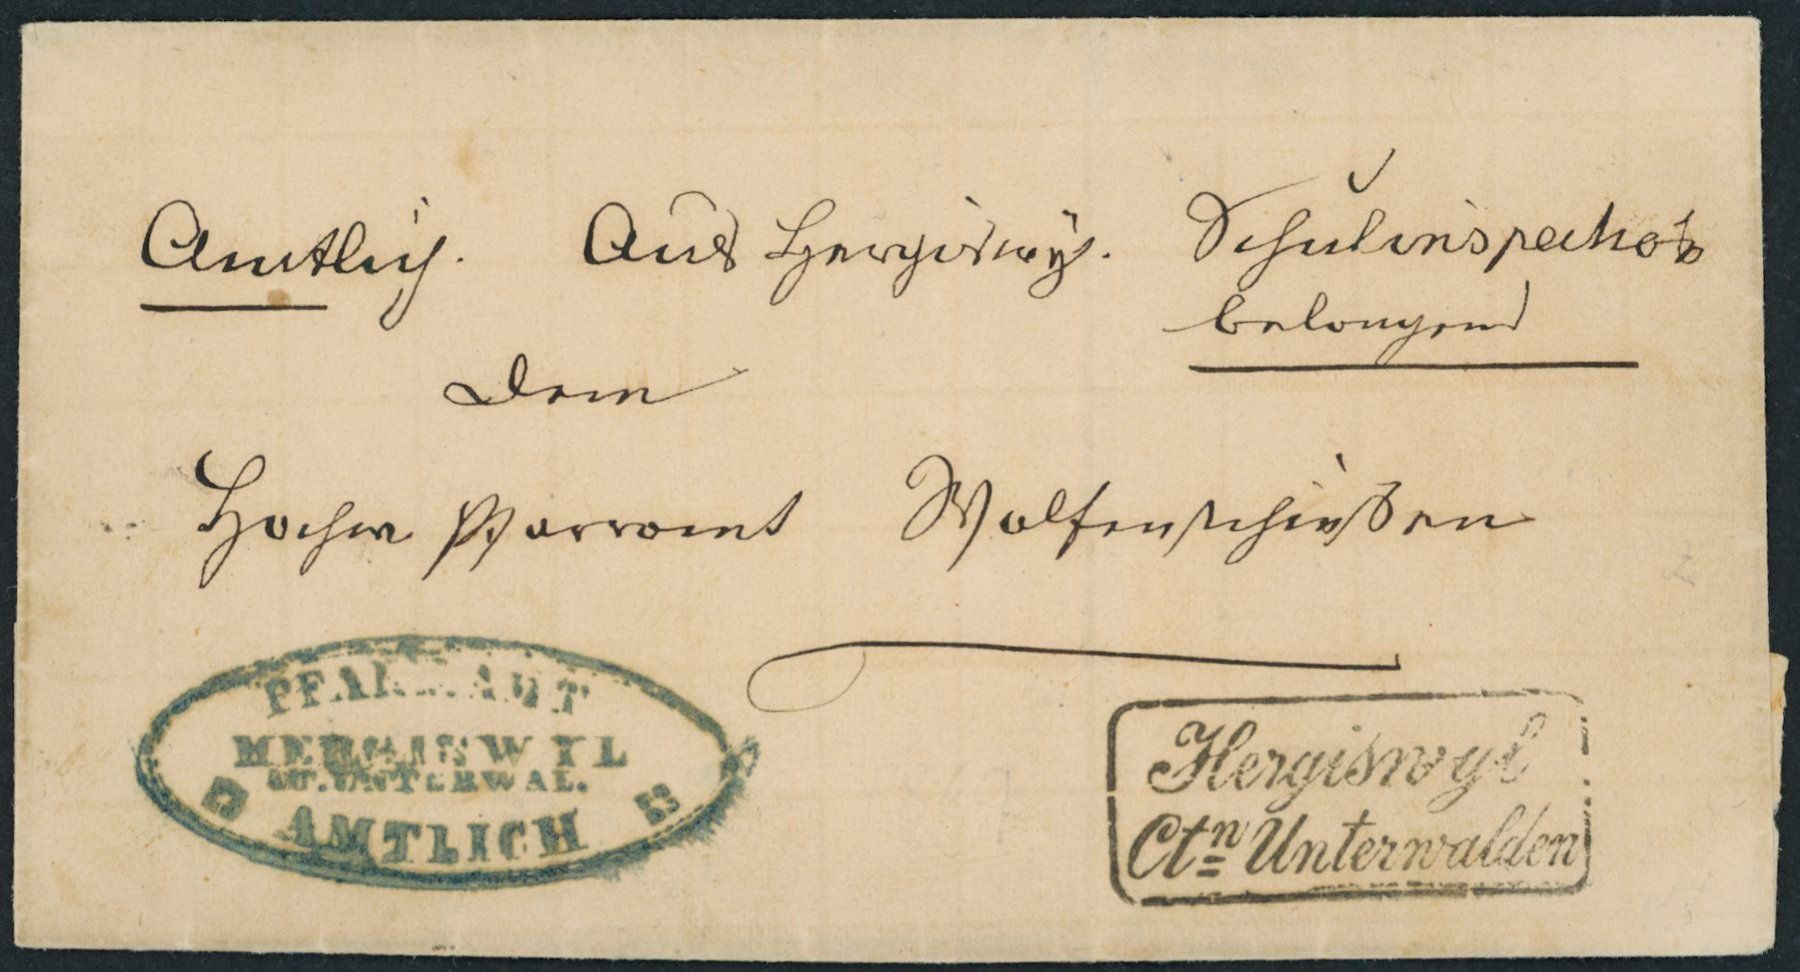 Amtlich. Aus Hergiswyl. Schulinspection
belangend
Dem
Hochw Pfarramt Wolfenschießen
PFARRAMT
HERGISWYL
UNTERWAL.
AMTLICH
Hergiswyl
Ctn Unterwalden